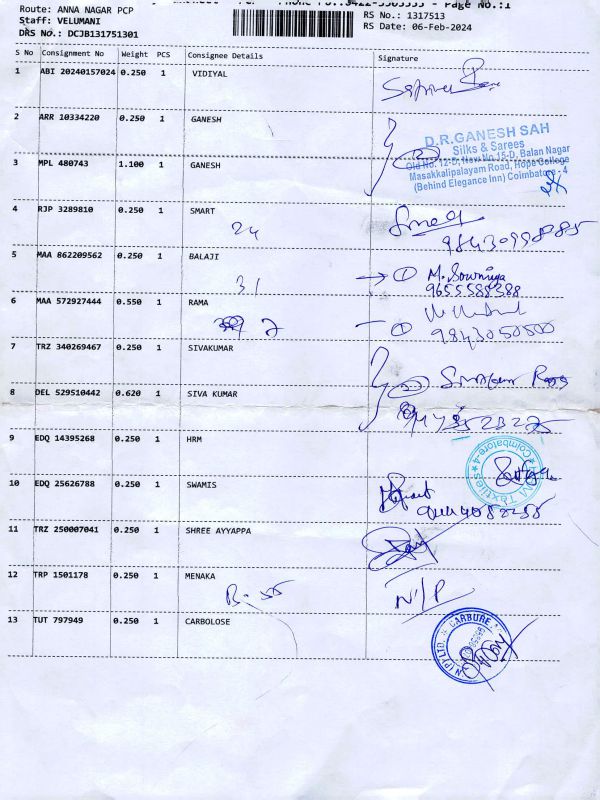 Page No.:1
Route: ANNA NAGAR PCP
Staff: VELUMANI
DRS No.: DCJB131751301
RS No.: 1317513
RS Date: 06-Feb-2024
S No Consignment No Weight PCS Consignee Details Signature
1 ABI 20240157024 0.250 1 VIDIYAL
2 ARR 10334220 0.250 1 GANESH
D.R.GANESH SAH
Silks & Sarees
Old No. 12-D, New No.15-D, Balan Nagar
Masakkalipalayam Road, Hope College
(Behind Elegance Inn) Coimbatore - 4
3 MPL 480743 1.100 1 GANESH
4 RJP 3289810 0.250 1 SMART
24
5 MAA 862209562 0.250 1 BALAJI
31
1 M. Sowmiya
9655588388
6 MAA 572927444 0.550 1 RAMA
2
1 9843050500
7 TRZ 340269467 0.250 1 SIVAKUMAR
8 DEL 529510442 0.620 1 SIVA KUMAR
9 EDQ 14395268 0.250 1 HRM
Textiles Coimbatore-4
10 EDQ 25626788 0.250 1 SWAMIS
11 TRZ 250007041 0.250 1 SHREE AYYAPPA
12 TRP 1501178 0.250 1 MENAKA
N/P
13 TUT 797949 0.250 1 CARBOLOSE
CARBURE
(P) LTD.